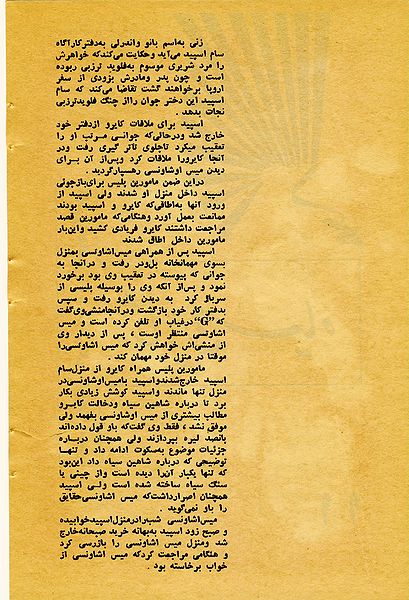 زنی به‌اسم بانو واندرلی به‌دفترکارآگاه
سام اسپید می‌آید وحکایت می‌کندکه خواهرش
را مرد شریری موسوم به‌فلوید ترزبی ربوده
است و چون پدر ومادرش بزودی از سفر
اروپا برخواهند گشت تقاضا می‌کند که سام
اسپید این دختر جوان رااز چنگ فلویدترزبی
نجات بدهد.
اسپید برای ملاقات کایرو ازدفتر خود
خارج شد ودرحالی‌که جوانی مرتب او را
تعقیب میکرد تاجلوی تآتر گیری رفت ودر
آنجا کایرورا ملاقات کرد وپس‌از آن برای
دیدن میس اوشاونسی رهسپارگردید.
دراین ضمن مامورین پلیس برای‌بازجوئی
اسپید داخل منزل او شدند ولی اسپید از
ورود آنها به‌اطاقی‌که کایرو و اسپید بودند
ممانعت بعمل آورد وهنگامی‌که مامورین قصد
مراجعت داشتند کایرو فریادی کشید واین‌بار
مامورین داخل اطاق شدند
اسپید پس از همراهی میس‌اشاونسی بمنزل
بسوی مهمانخانه بل‌ودر رفت و درآنجا به
جوانی که پیوسته در تعقیب وی بود برخورد
نمود و پس‌از آنکه وی را بوسیله پلیسی از
سرباز کرد به دیدن کایرو رفت و سپس
بدفتر کار خود بازگشت ودرآنجامنشی‌وی‌گفت
که "G" درغیاب او تلفن کرده است و میس
اشاونسی منتظر اوست، پس از دیدار وی
از منشی‌اش خواهش کرد که میس اشاونسی‌را
موقتا در منزل خود مهمان کند.
مامورین پلیس همراه کایرو از منزل‌سام
اسپید خارج‌شدندواسپید بامیس‌اوشاونسی‌در
منزل تنها ماندند واسپید کوشش زیادی بکار
برد تا درباره شاهین سیاه ودخالت کایرو
مطالب بیشتری از میس اوشاونسی بفهمد ولی
موفق نشد، فقط وی گفت‌که باو قول داده‌اند
پانصد لیره بپردازند ولی همچنان درباره
جزئیات موضوع به‌سکوت ادامه داد و تنها
توضیحی که درباره شاهین سیاه داد این‌بود
که تنها یکبار آن‌را دیده است واز چینی یا
سنگ سیاه ساخته شده است ولی اسپید
همچنان اصرارداشت‌که میس اشاونسی‌حقایق
را باو نمی‌گوید.
میس‌اشاونسی شب‌رادرمنزل‌اسپیدخوابیده
و صبح زود اسپید به‌بهانه خرید صبحانه‌خارج
شد ومنزل میس اشاونسی را بازرسی کرد
و هنگامی مراجعت کردکه میس اشاونسی از
خواب برخاسته بود.